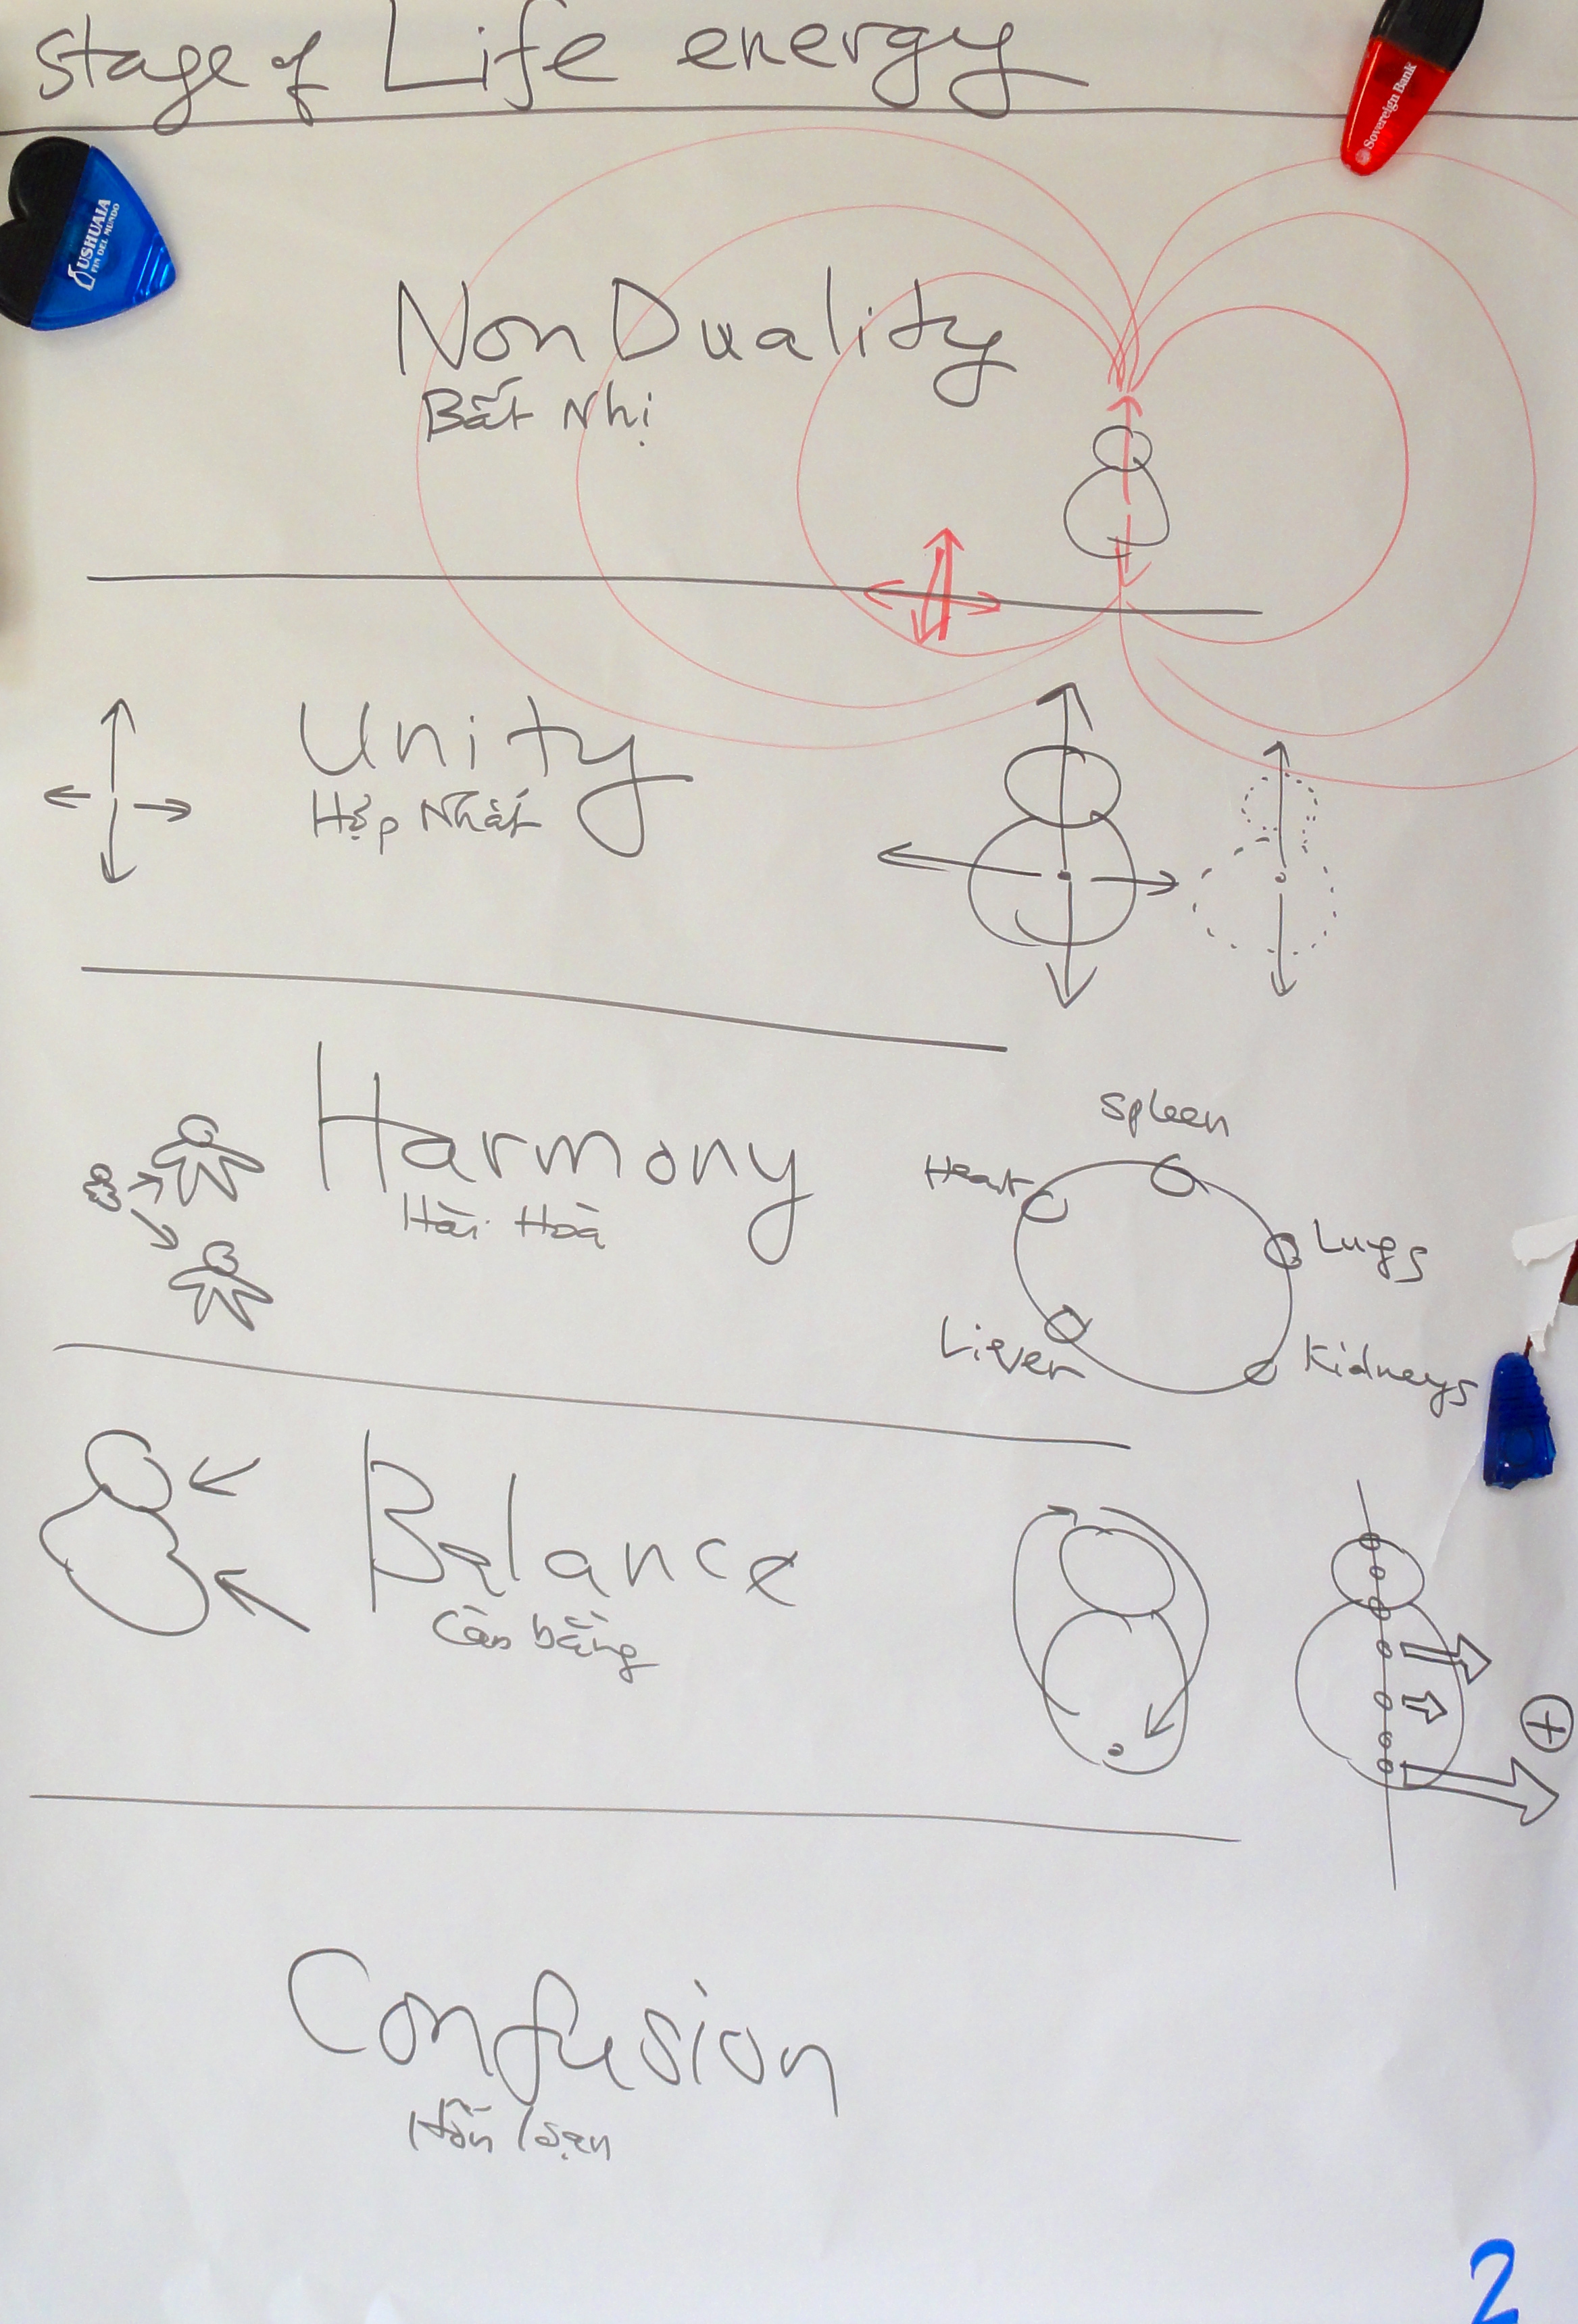 Stage of Life energy
Sovereign Bank
USHUAIA
FIN DEL MUNDO
Non Duality
Bất Nhị
Unity
Hợp Nhất
Harmony
Hài Hoà
Spleen
Heart
Lugs
Liever
Kidneys
Balance
Cân bằng
+
Confusion
Hỗn loạn
2